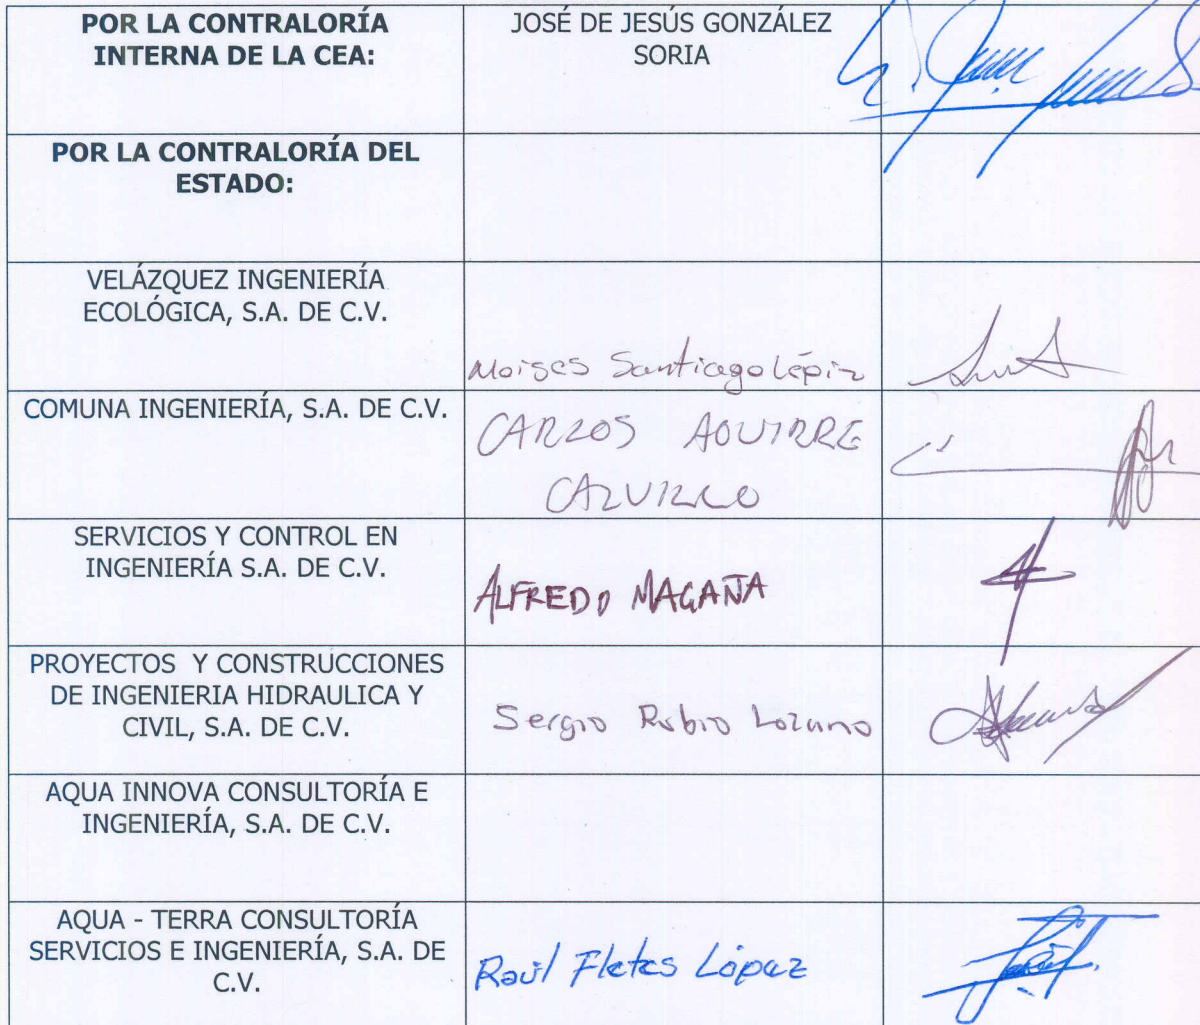 POR LA CONTRALORÍA
INTERNA DE LA CEA:
JOSÉ DE JESÚS GONZÁLEZ
SORIA
POR LA CONTRALORÍA DEL
ESTADO:
VELÁZQUEZ INGENIERÍA
ECOLÓGICA, S.A. DE C.V.
Moises Santiago Lépiz
COMUNA INGENIERÍA, S.A. DE C.V.
CARLOS AGUIRRE
CALVILLO
SERVICIOS Y CONTROL EN
INGENIERÍA S.A. DE C.V.
ALFREDO MAGAÑA
PROYECTOS Y CONSTRUCCIONES
DE INGENIERIA HIDRAULICA Y
CIVIL, S.A. DE C.V.
Sergio Rubio Lozano
AQUA INNOVA CONSULTORÍA E
INGENIERÍA, S.A. DE C.V.
AQUA - TERRA CONSULTORÍA
SERVICIOS E INGENIERÍA, S.A. DE
C.V.
Raúl Fletes López